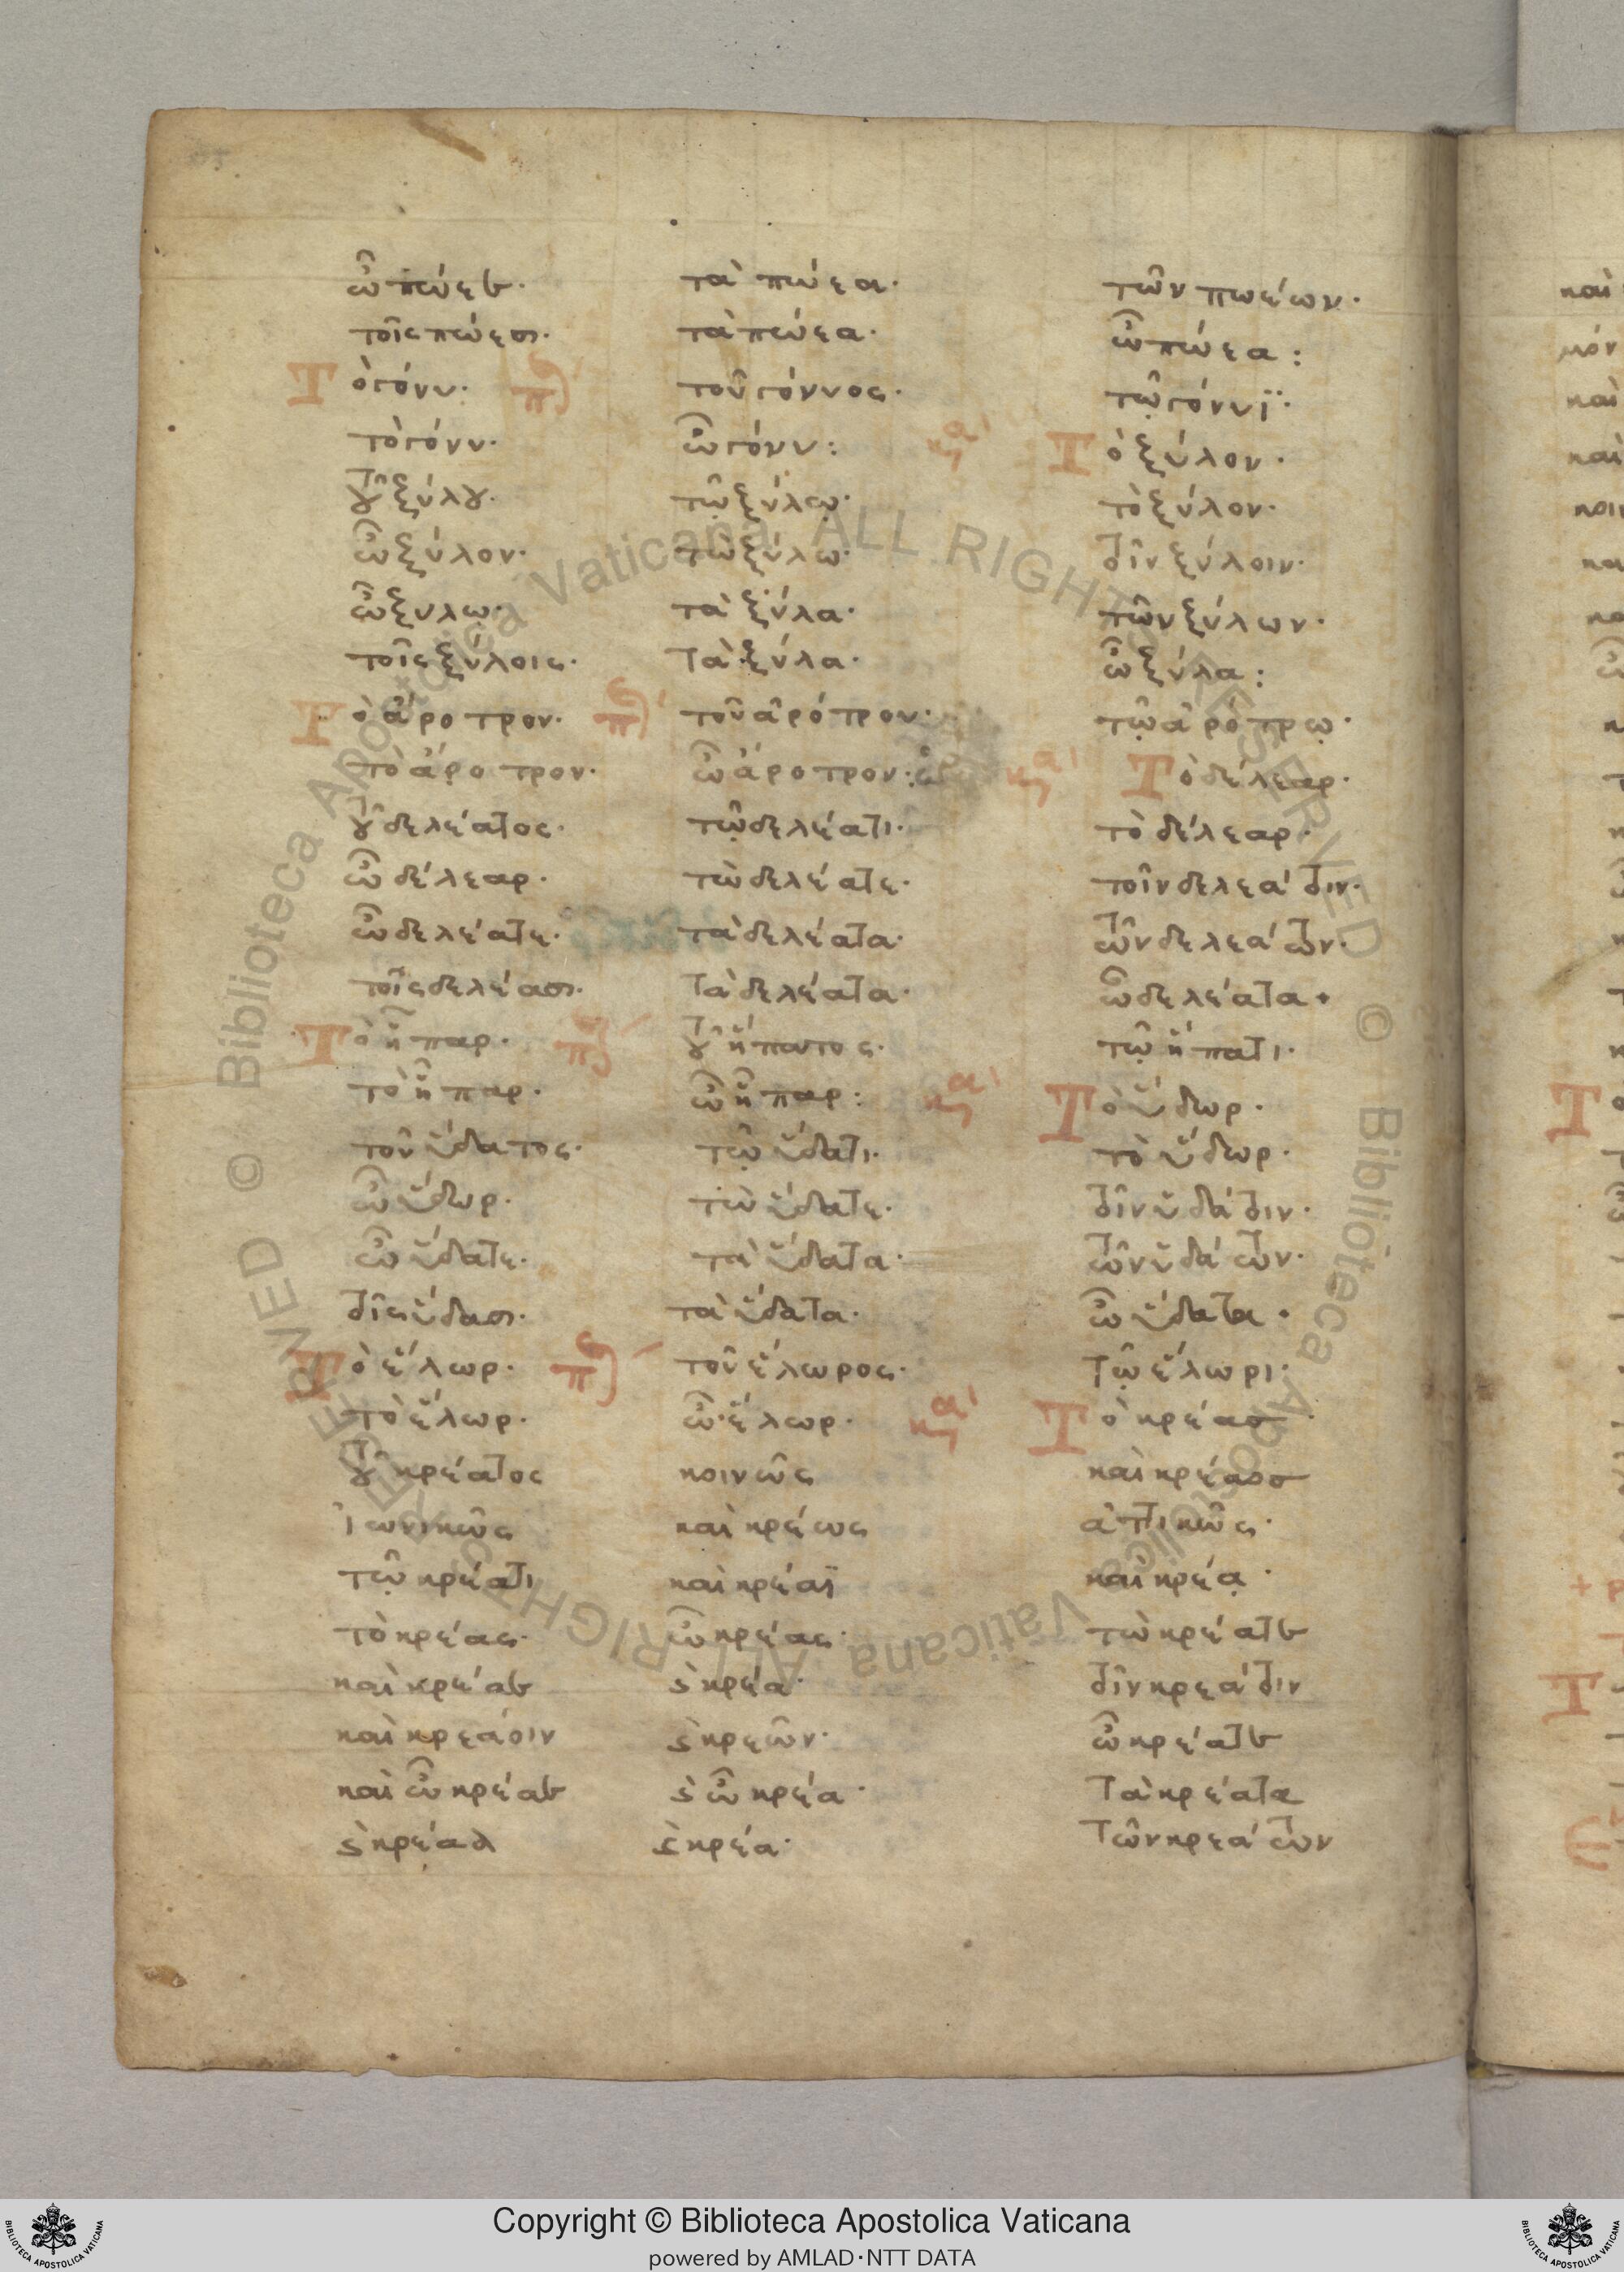 ὦ πώεε· τὰ πώεα· τῶν πωέων·
τοῖς πώεσι· τὰ πώεα· ὦ πώεα:
Τὸ γόνυ: τοῦ γόννος· τῷ γόνυϊ·
τὸ γόνυ· ὦ γόνυ: Τὸ ξύλον·
τοῦ ξύλου· τῷ ξύλῳ· τὸ ξύλον·
ὦ ξύλον· τὼ ξύλω· τοῖν ξύλοιν·
ὦ ξυλω· τὰ ξύλα· τῶν ξύλων·
τοῖς ξύλοις· τὰ ξύλα· ὦ ξύλα:
Τὸ ἄροτρον· τοῦ ἀρότρου· τῷ ἀρότρῳ·
τὸ ἄροτρον· ὦ ἄροτρον: Τὸ δέλεαρ·
τοῦ δελέατος· τῷ δελέατι· τὸ δέλεαρ·
ὦ δέλεαρ· τὼ δελέατε· τοῖν δελεάτοιν·
ὦ δελέατε· τὰ δελέατα· τῶν δελεάτων·
τοῖς δελέασι· τὰ δελέατα· ὦ δελέατα+
Τὸ ἧπαρ· τοῦ ἥπατος· τῷ ἥπατι·
τὸ ἧπαρ· ὦ ἧπαρ: Τὸ ὕδωρ·
τοῦ ὕδατος· τῷ ὕδατι· τὸ ὕδωρ·
ὦ ὕδωρ· τὼ ὕδατε· τοῖν ὑδάτοιν·
ὦ ὕδατε· τὰ ὕδατα· τῶν ὑδάτων·
τοῖς ὕδασι· τὰ ὕδατα· ὦ ὕδατα+
Τὸ ἕλωρ· τοῦ ἕλωρος· τῷ ἕλωρι·
τὸ ἕλωρ· ὦ ἕλωρ· Τὸ κρέας·
τοῦ κρέατος κοινῶς καὶ κρέαος
ἰωνικῶς καὶ κρέως ἀττικῶς·
τῷ κρέατι καὶ κρέαϊ καὶ κρέᾳ·
τὸ κρέας· ὦ κρέας· τὼ κρέατε
καὶ κρέαε ϗ κρέα· τοῖν κρεάτοιν
καὶ κρεάοιν ϗ κρεῶν· ὦ κρέατε
καὶ ὦ κρέαε ϗ ὦ κρέα· τὰ κρέατα
ϗ κρέαα ϗ κρέα· τῶν κρεάτων
Copyright © Biblioteca Apostolica Vaticana
powered by AMLAD·NTT DATA